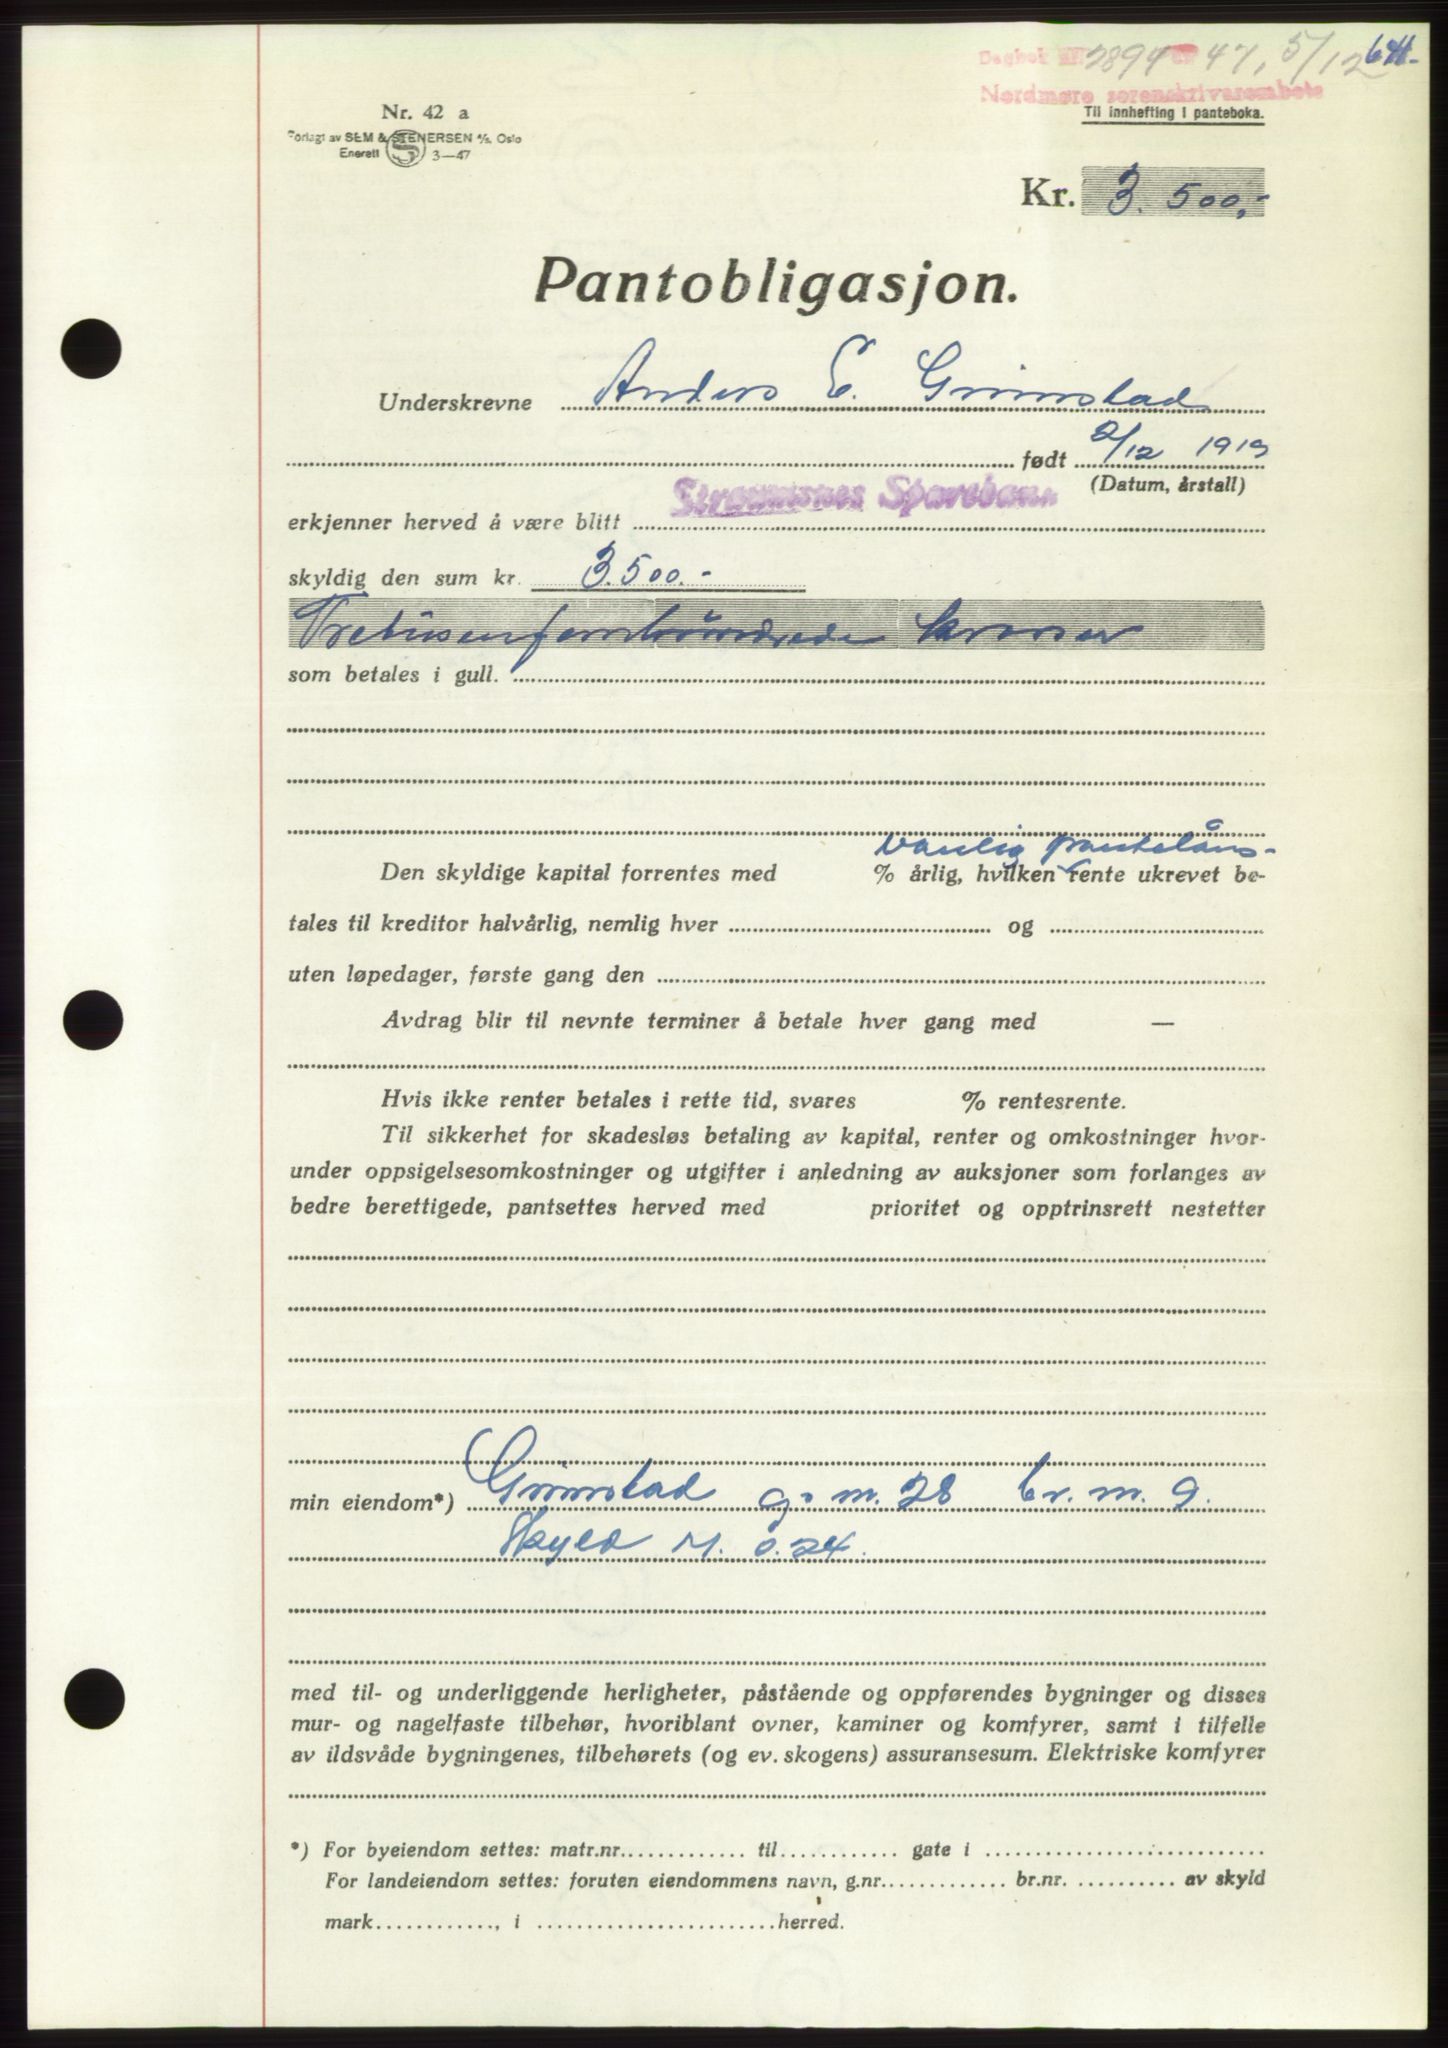 Dagbok nr. 2894 - 47, 5/12 641.
Nordmøre sorenskrivarembete
Til innhefting i panteboka.
Nr. 42 a
Forlagt av SEM & STENERSEN A/S, Oslo
Enerett S 3—47
Kr. 3.500,-
Pantobligasjon.
Underskrevne Anders E. Grimstad
født 2/12 1919
(Datum, årstall)
erkjenner herved å være blitt Straumsnes Sparebank
skyldig den sum kr. 3.500.-
Tretusenfemhundrede kroner
som betales i gull.
vanlig pantelåns-
Den skyldige kapital forrentes med % årlig, hvilken rente ukrevet be-
tales til kreditor halvårlig, nemlig hver og
uten løpedager, første gang den
Avdrag blir til nevnte terminer å betale hver gang med —
Hvis ikke renter betales i rette tid, svares % rentesrente.
Til sikkerhet for skadesløs betaling av kapital, renter og omkostninger hvor-
under oppsigelsesomkostninger og utgifter i anledning av auksjoner som forlanges av
bedre berettigede, pantsettes herved med prioritet og opptrinsrett nestetter
min eiendom*) Grimstad g. nr. 28 br. nr. 9.
Skyld M. 0.24.
med til- og underliggende herligheter, påstående og oppførendes bygninger og disses
mur- og nagelfaste tilbehør, hvoriblant ovner, kaminer og komfyrer, samt i tilfelle
av ildsvåde bygningenes, tilbehørets (og ev. skogens) assuransesum. Elektriske komfyrer
*) For byeiendom settes: matr.nr. til gate i
For landeiendom settes: foruten eiendommens navn, g.nr. br.nr. av skyld
mark , i herred.